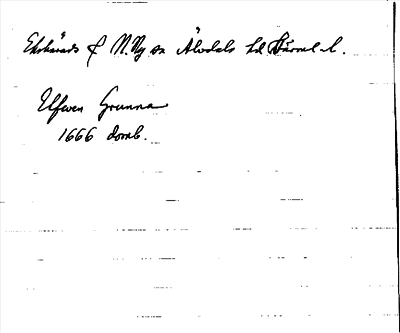 Ekshärads f N. Ny sn Älvdals hd Värml. l.
Elfwen Grunna
1666 domb.